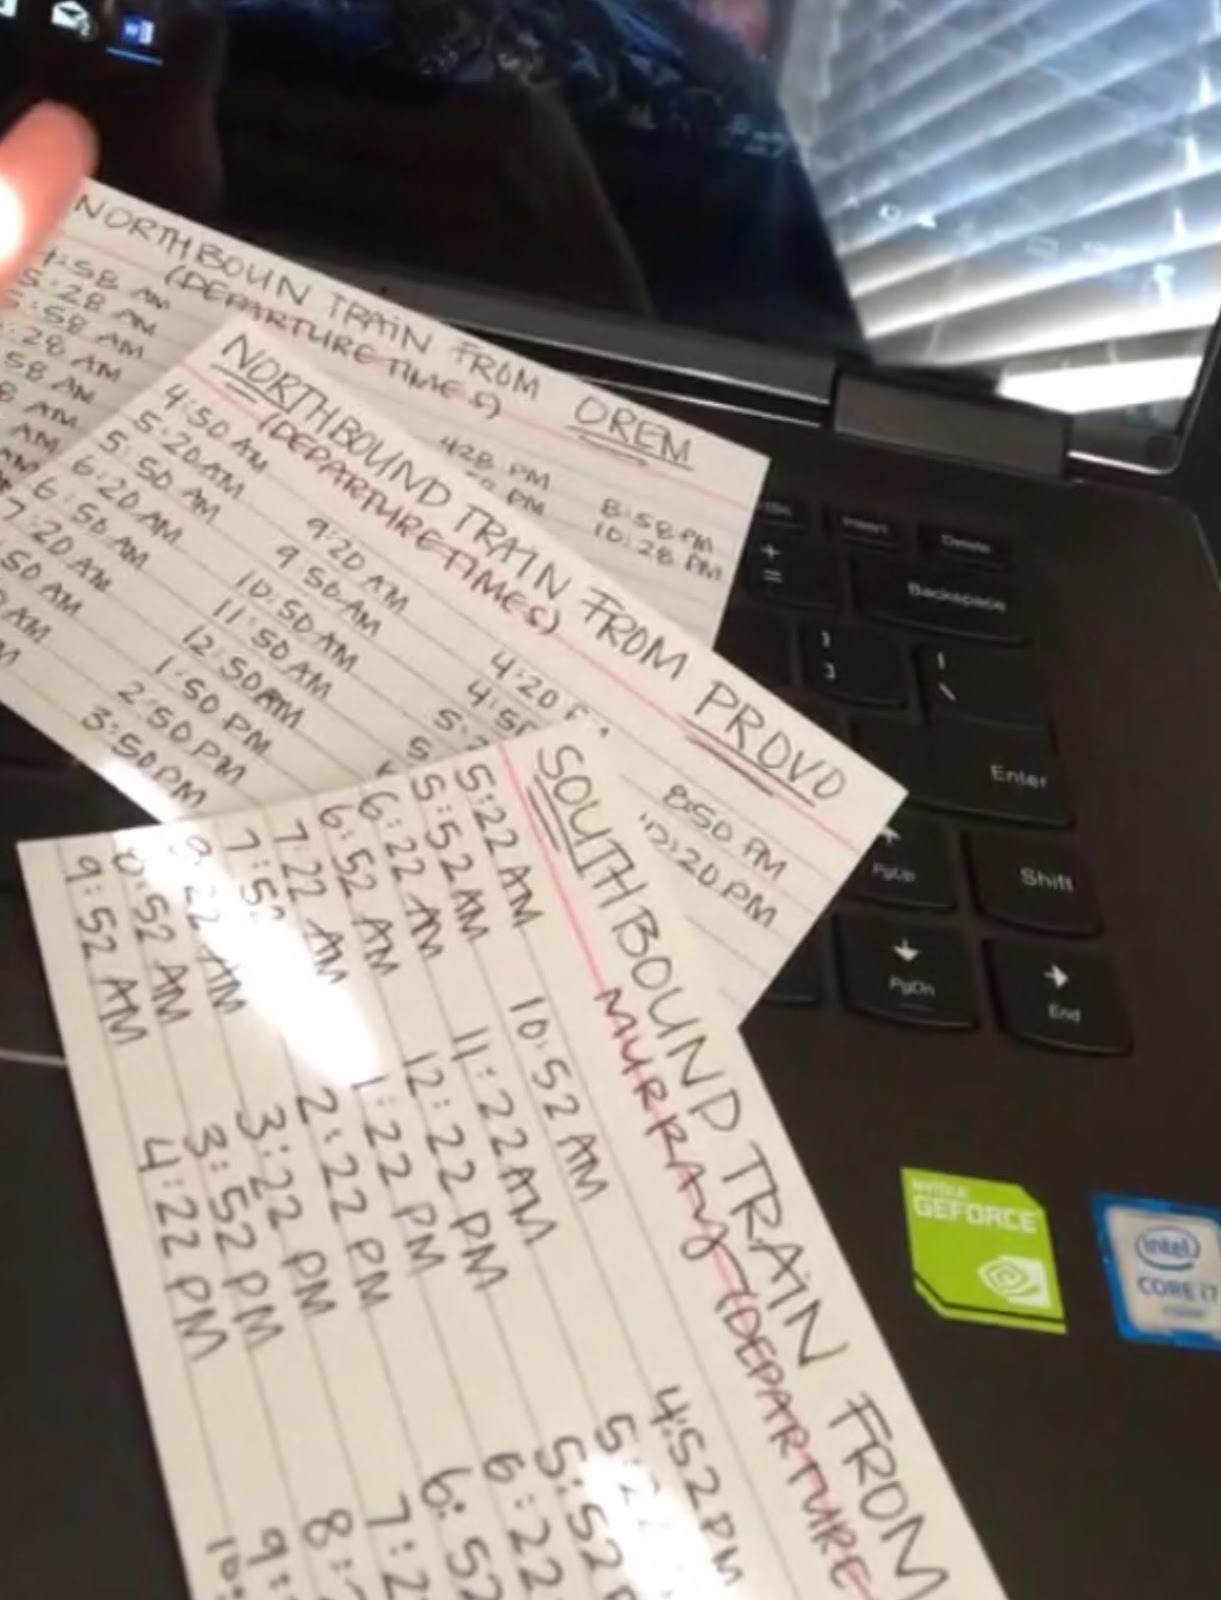 NORTHBOUN TRAIN FROM OREM
(DEPARTURE TIMES)
4:58 AM
5:28 AM
5:58 AM
:28 AM
58 AM
8 AM
AM
428 PM
PM
8:58 PM
10:28 PM
NORTHBOUND TRAIN FROM PROVO
(DEPARTURE TIMES)
4:50 AM
5:20 AM
5:50 AM
6:20 AM
6:50 AM
7:20 AM
50 AM
AM
9:20 AM
9:50 AM
10:50 AM
11:50 AM
12:50 AM
1:50 PM
2:50 PM
3:50 PM
4:20 P
4:50
5:2
5
8:50 PM
10:20 PM
SOUTHBOUND TRAIN FROM
MURRAY (DEPARTURE
5:22 AM
5:52 AM
6:22 AM
6:52 AM
7:22 AM
7:52
9:22 AM
8:52 AM
9:52 AM
10:52 AM
11:22 AM
12:22 PM
1:22 PM
2:22 PM
3:22 PM
3:52 PM
4:22 PM
4:52 PM
5:2
5:52 P
6:22
6:52
7:2
8:
9:
10:
Insert
Delete
+
=
Backspace
Enter
PgUp
Shift
PgDn
End
NVIDIA
GEFORCE
intel
CORE i7